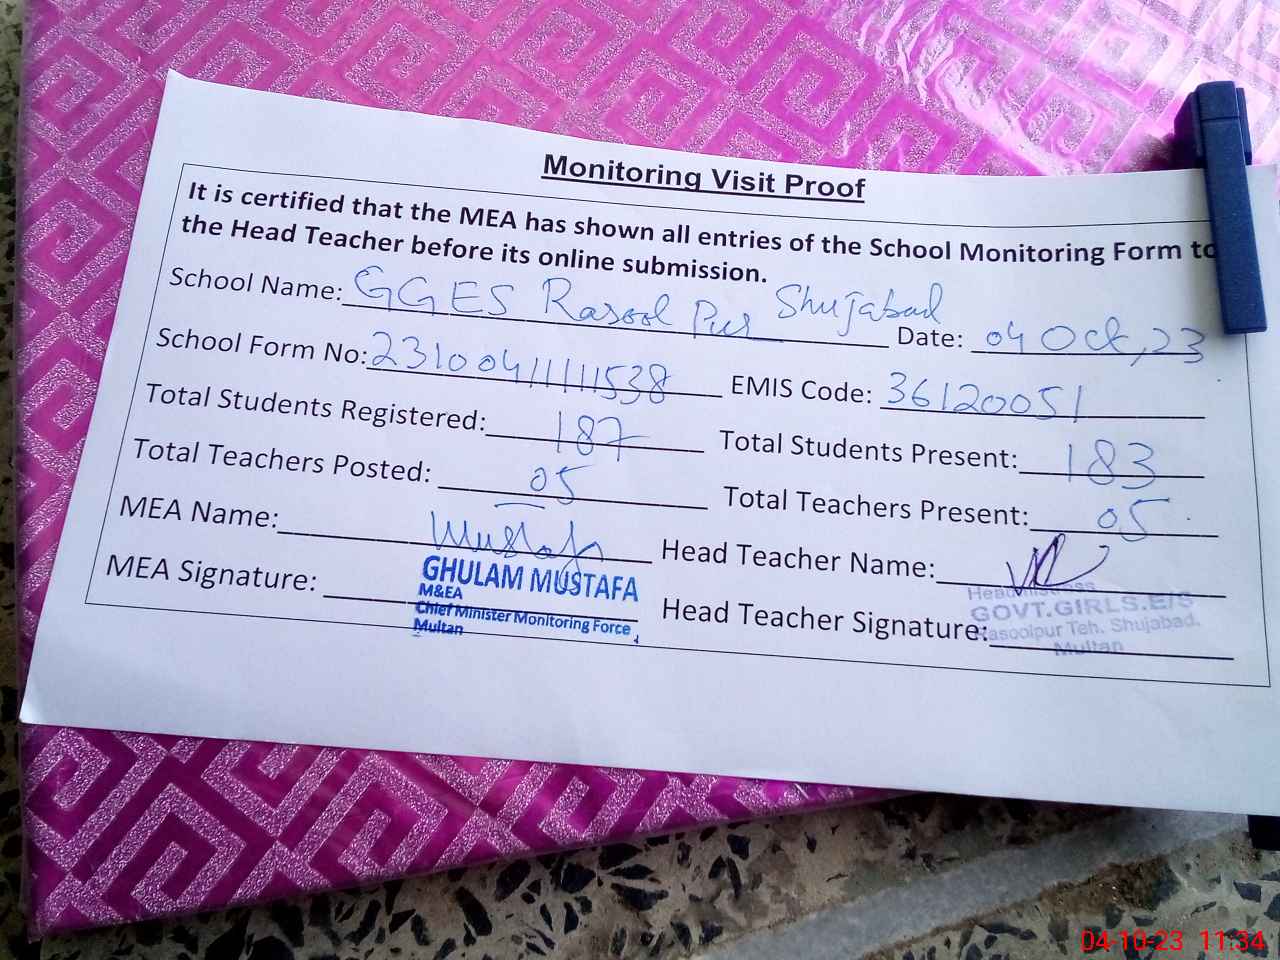 Monitoring Visit Proof
It is certified that the MEA has shown all entries of the School Monitoring Form to
the Head Teacher before its online submission.
School Name: GGES Rasool Pur Shujabad Date: 04 Oct, 23
School Form No: EMIS Code: 36120051
Total Students Registered: 187 Total Students Present: 183
Total Teachers Posted: 05 Total Teachers Present: 05
MEA Name: Mustafa Head Teacher Name:
MEA Signature: Head Teacher Signature:
GHULAM MUSTAFA
M&EA
Chief Minister Monitoring Force
Multan
Headmistress
GOVT.GIRLS.E/S
Rasoolpur Teh. Shujabad.
Multan
04-10-23 11:34